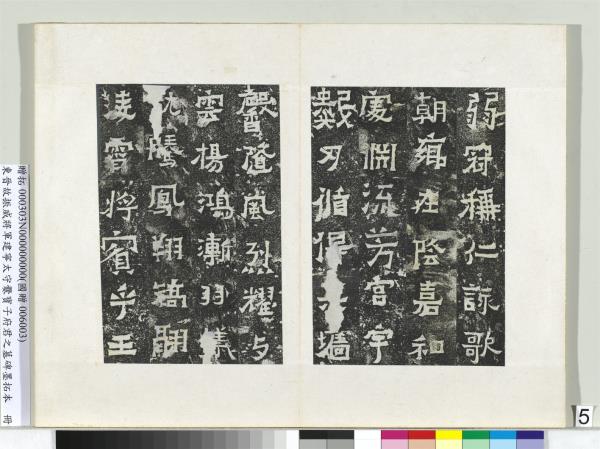 弱冠稱仁詠歌
朝鄉在陰嘉和
處渊流芳宮宇
數刃循得墻
馨隨風烈耀与
雲揚鴻漸羽儀
騰鳳翔矯翮
淩霄將賓乎王
贈拓 000303N000000000(國贈 006003)
東晉故振威將軍建寧太守爨寶子府君之墓碑墨拓本 冊
5